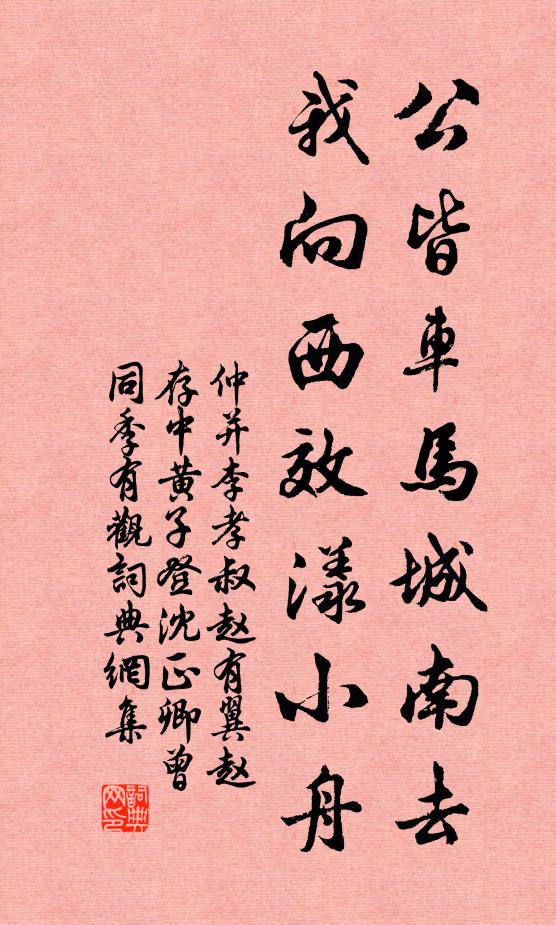 公皆車馬城南去
我向西效漾小舟
仲并李孝叔赵有翼赵
存中黄子登沈正卿曾
同季有觀詞典網集
詞典
网印